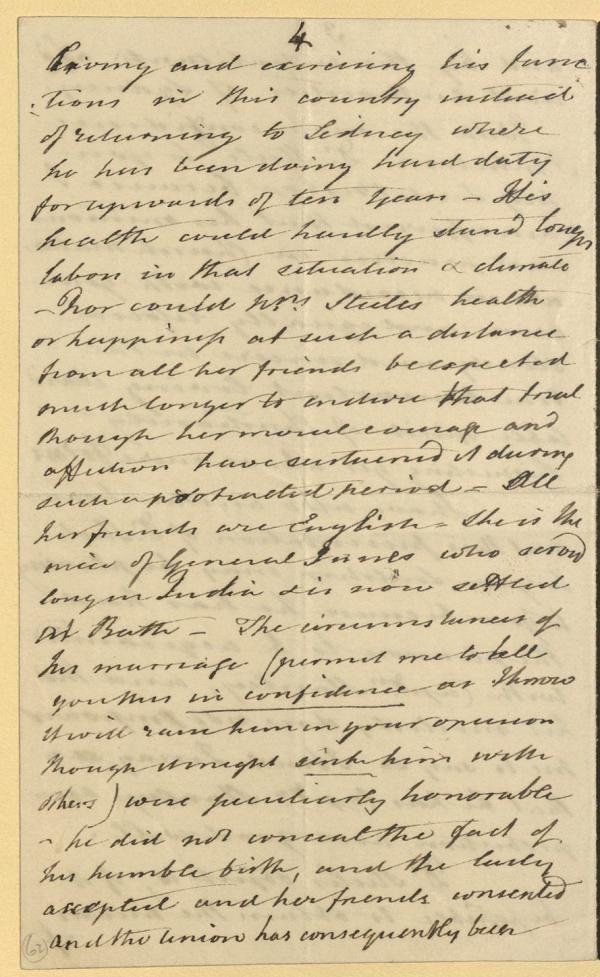 4
living and exercising his func
tions in this country instead
of returning to Sidney where
he has been doing hard duty
for upwards of ten years – His
health could hardly stand longer
labor in that situation & climate
– Nor could Mrs Steeles health
or happiness at such a distance
from all her friends be expected
much longer to endure that trial
though her moral courage and
affection have sustained it during
such a protracted period – All
her friends are English – She is the
niece of General Innes who served
long in India & is now settled
at Bath – The circumstances of
his marriage (permit me to tell
you this in confidence as I know
it will raise him in your opinion
though it might sink him with
others) were peculiarly honorable
– he did not conceal the fact of
his humble birth, and the lady
accepted and her friends consented
and the union has consequently been
62